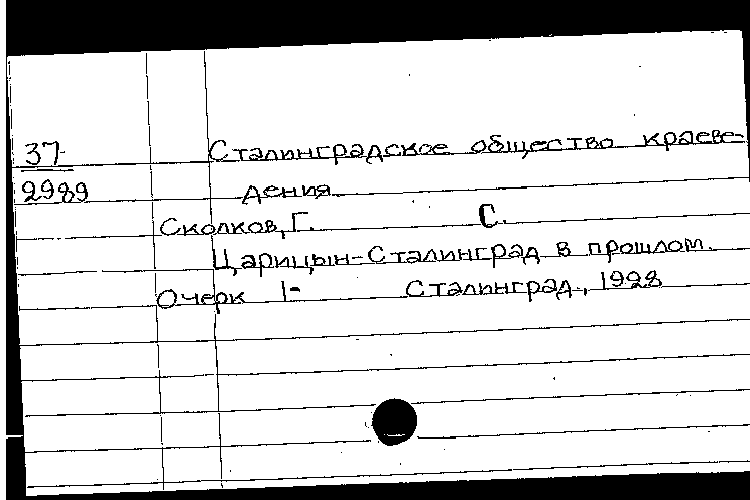 37-
2989
Сталинградское общество краеве-
дения
Сколков, Г. С.
Царицын-Сталинград в прошлом.
Очерк 1- Сталинград, 1928